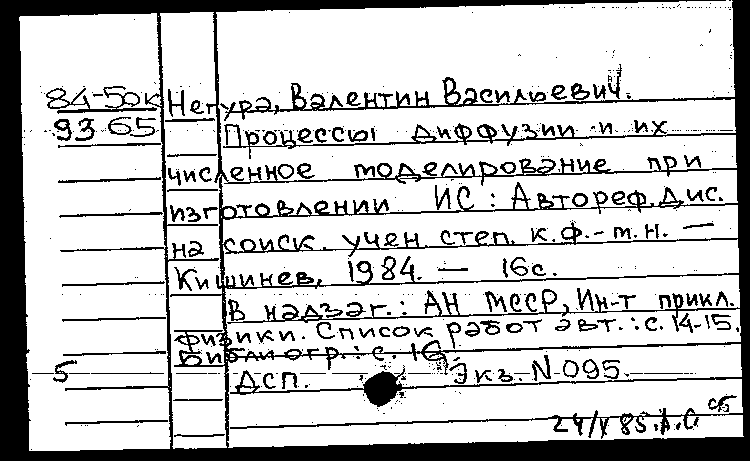 84-50к Негура, Валентин Васильевич.
93 65 Процессы диффузии и их
численное моделирование при
изготовлении ИС: Автореф. Дис.
на соиск. учен. степ. к.ф.-т.н. —
Кишинев, 1984. — 16с.
В надзаг.: АН МССР, Ин-т прикл.
физики. Список работ авт.: с. 14-15.
Библиогр.: с. 16
5 ДСП. Экз. N 095.